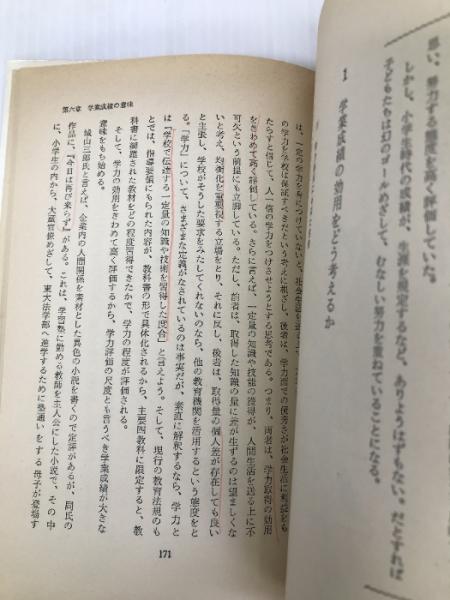 思い、努力する
を高く評価していた。
しかし、小学生時代の
が将来を規定するなど、ありようはずもない。だとすれば
子どもたちは幻のゴールめざして、むなしい努力を重ねていることになる。
1 学業成績の効用をどう考えるか
第六章 学業成績の意味
は、一定の学力を身につけていないと、社会生活を送る
の学力を学校は保証すべきだという考えに基づき、後者は、学力面での優秀さが社会生活に利益をも
たらすと信じて、人一倍の学力をつけさせようとする思考である。つまり、両者は、学力取得の効用
をきわめて高く評価している。さらに言えば、一定量の知識や技能の獲得が、人間生活を送る上に不
可欠という前提にも立脚している。ただし、前者は、取得した知識の量に差が生ずるのは望ましくな
いと考え、均衡化を重視する立場をとり、それに反し、後者は、取得量の個人差が存在しても良い
と主張し、学校がそうした要求をみたしてくれないのなら、他の教育機関を活用するという態度をと
る。「学力」について、さまざまな定義がなされているのは事実だが、素直に解釈するなら、学力と
は『学校で伝達する一定量の知識や技術を習得した度合』と言えよう。そして、現行の教育法規のも
とでは、指導要領にもられた内容が、教科書の形で具体化されるから、主要四教科に限定すると、教
科書に網羅された教材をどの程度習得できたかで、学力の程度が評価される。
そして、学力の効用をきわめて高く評価するから、学力評価の尺度とも言うべき学業成績が大きな
意味をもち始める。
城山三郎氏と言えば、企業内の人間関係を素材とした異色の小説を書くので定評があるが、同氏の
作品に、『今日は再び来らず』がある。これは、学習塾に勤める教師を主人公にした小説で、その中
に、小学生の内から、大蔵官僚めざして、東大法学部へ進学するために塾通いをする母子が登場す
171